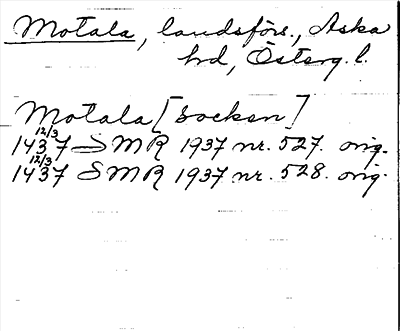 Motala, landsförs., Aska
hd, Österg. l.
Motala [socken]
12/3
1437 SMR 1937 nr. 527. orig.
12/3
1437 SMR 1937 nr. 528. orig.